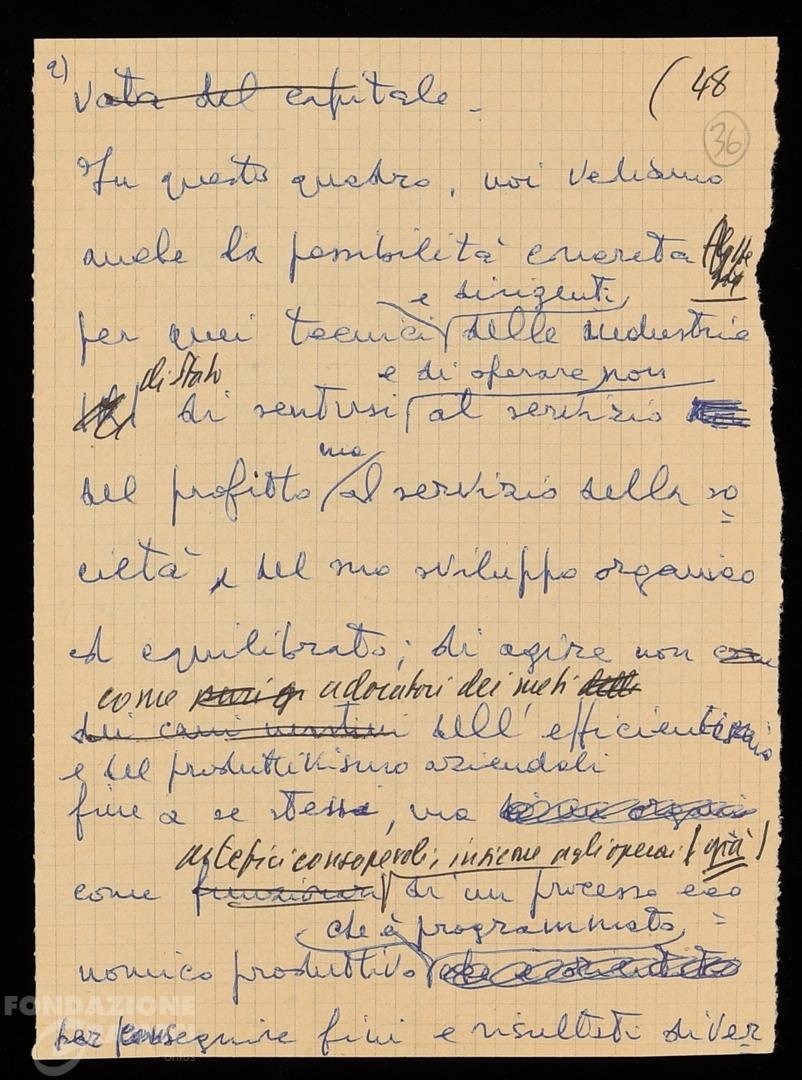 2)
vata del capitale -
(48
36
In questo quadro, noi vediamo
anche la possibilità concreta
e dirigenti
per quei tecnici delle industrie
di Stato
e di operare non
di sentirsi al servizio
ma
del profitto al servizio della so
cietà, e del suo sviluppo organico
ed equilibrato; di agire non
come adoratori dei miti
dell'efficientismo
e del produttivismo aziendali
fine a se stessi, ma
artefici consapevoli, insieme agli operai (già)
come funzionari di un processo eco
che è programmato
nomico produttivo
per conseguire fini e risultati diver
FONDAZIONE
onlus